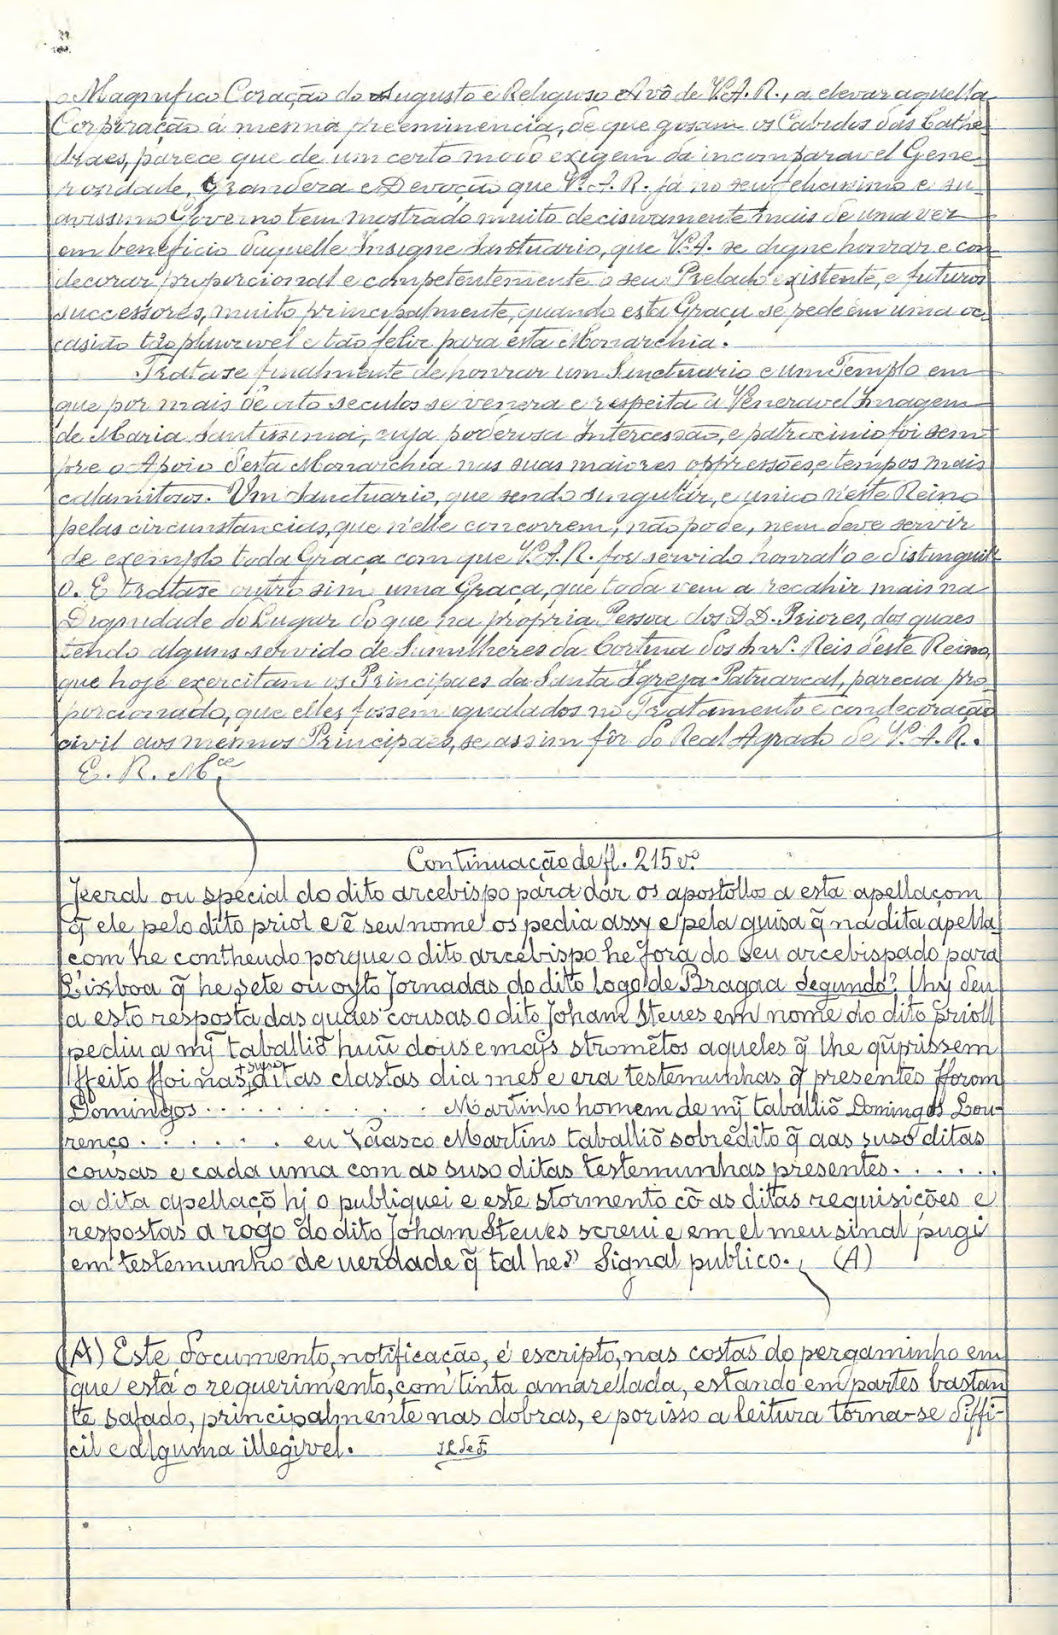 o Magnifico Coração do Augusto e Religioso Avô de V. A. R., a elevar aquella
Corporação á mesma preeminencia, de que gosam os Cabidos das Cathe-
draes, parece que de um certo modo exigem da incomparavel Gene-
rosidade, Grandeza e Devoção que V. A. R. já no seu felicissimo e su-
avissimo Governo tem mostrado muito decisivamente mais de uma vez
em beneficio daquelle Insigne Santuario, que V. A. se digne honrar e con-
decorar proporcional e competentemente o seu Prelado existente, e futuros
successores, muito principalmente, quando esta Graça se pede em uma oc-
casião tão plausivel e tão feliz para esta Monarchia.
Trata se finalmente de honrar um Sanctuario e um Templo em
que por mais de oito seculos se venera e respeita a Veneravel Imagem
de Maria Santissima, cuja poderosa Intercessão, e patrocinio foi sem-
pre o Apoio d'esta Monarchia nas suas maiores oppressões, e tempos mais
calamitosos. Um Sanctuario, que sendo singular, e unico n'este Reino
pelas circumstancias, que n'elle concorrem, não póde, nem deve servir
de exemplo toda Graça com que V. A. R. fôr servido honral'o e distinguil-
o. E trata se outro sim uma Graça, que toda vem a recahir mais na
Dignidade do Lugar do que na propria Pessoa dos D.D. Priores, dos quaes
tendo alguns servido de Sumilheres da Cortina dos Snrs. Reis d'este Reino,
que hoje exercitam os Principaes da Santa Igreja Patriarcal, parecia pro-
porcionado, que elles fossem igualados no Tratamento e condecoração
civil aos mesmos Principaes, se assim fôr do Real Agrado de V. A. R..
E. R. M.ce
Continuação de fl. 215 vº
Jeeral ou special do dito arcebispo para dar os apostollos a esta apellaçom
q̃ ele pelo dito priol e ẽ seu nome os pedia assy e pela guisa q̃ na dita apella
com he contheudo porque o dito arcebispo he fora do seu arcebispado para
Lixboa q̃ he sete ou oyto Jornadas do dito logo de Bragaa segundo? Lhy deu
a esto resposta das quaes cousas o dito Joham Steues em nome do dito prioll
pediu a mỹ taballiõ huũ dous e mays stromẽtos aqueles q̃ lhe cũprissem
ffeito ffoi nas ditas clastas dia mes e era testemunhas q̃ presentes fforom
Domingos . . . . . . . . . . Martinho homem de mỹ taballiõ Domingos Lou-
renço . . . . . . eu Vaasco Martins taballiõ sobredito q̃ aas suso ditas
cousas e cada uma com as suso ditas testemunhas presentes . . . . . .
a dita apellaçõ hj o publiquei e este stormento cõ as ditas requisicões e
respostas a rogo do dito Joham Steues screui e em el meu sinal pugi
em testemunho de uerdade q̃ tal he» Signal publico. (A)
(A) Este documento, notificação, é escripto, nas costas do pergaminho em
que está o requerimento, com tinta amarellada, estando em partes bastan
te safado, principalmente nas dobras, e por isso a leitura torna-se diffi-
cil e alguma illegivel.